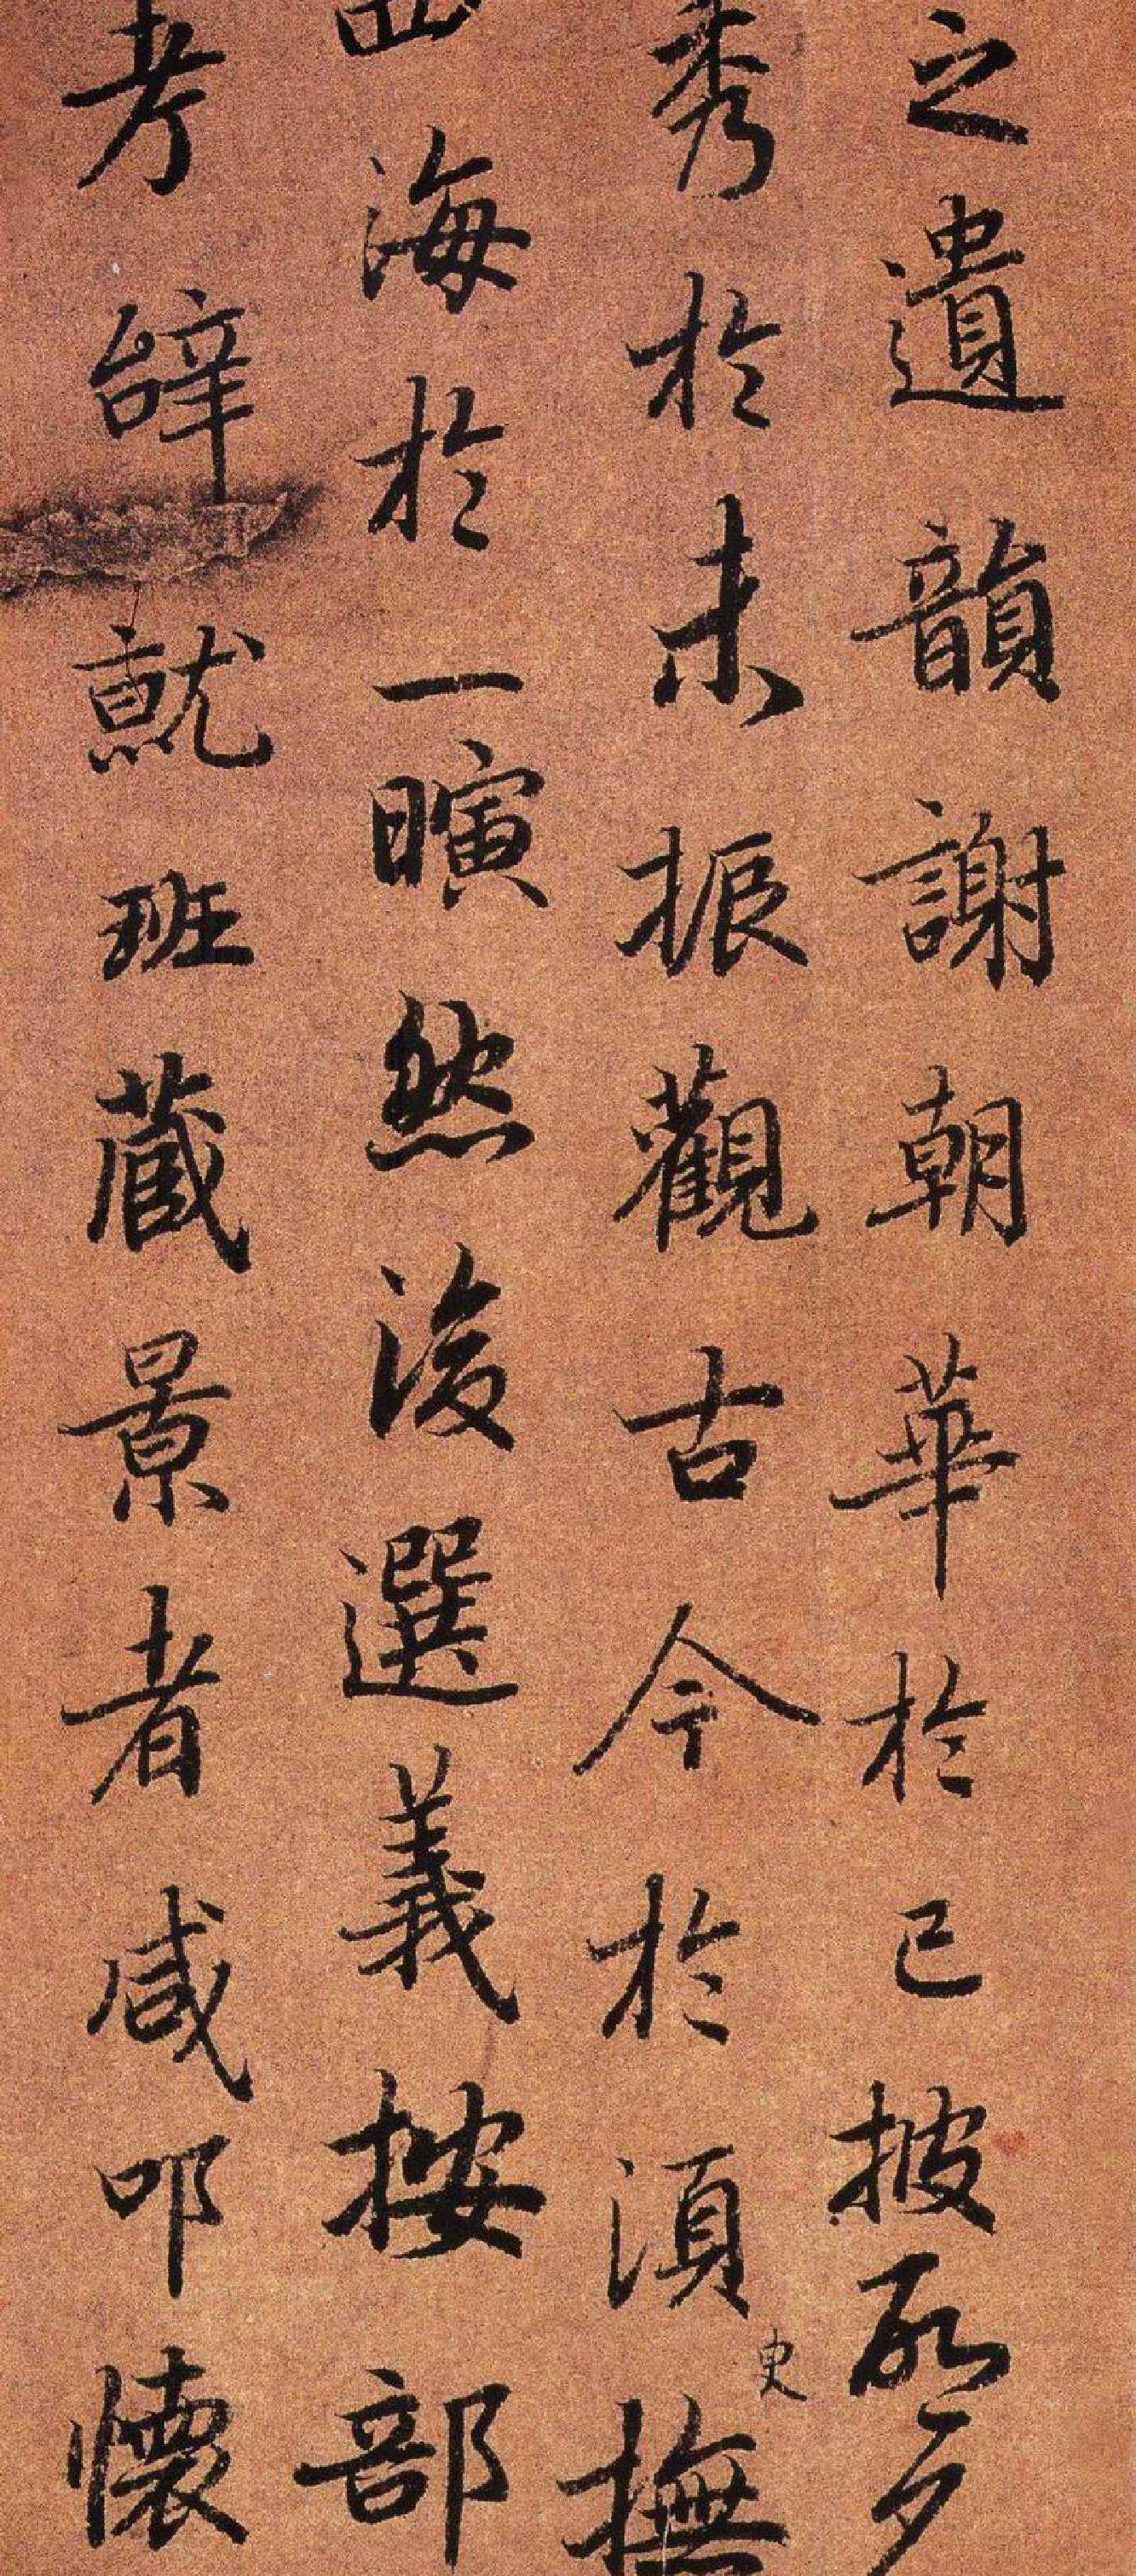 之遺韻謝朝華於已披啓夕
秀於未振觀古今於湏臾撫
四海於一瞚然後選義按部
考辝就班蔵景者咸叩懷